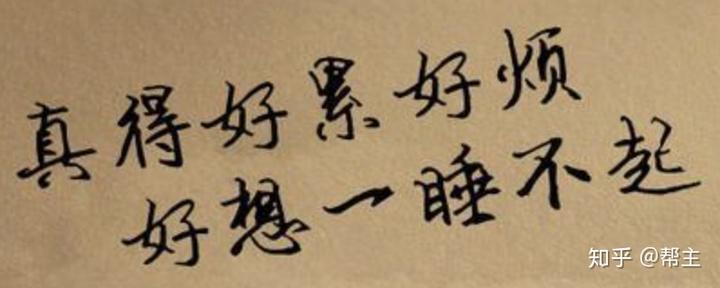 真得好累好烦
好想一睡不起
知乎 @帮主